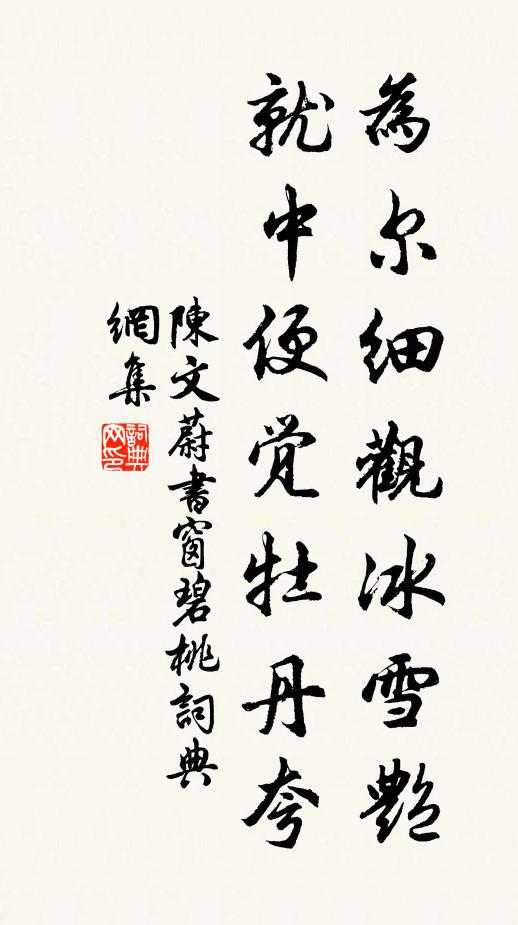 為尔细觀冰雪艷
就中便覺牡丹夸
陳文蔚書窗碧桃詞典
網集
詞典
网印